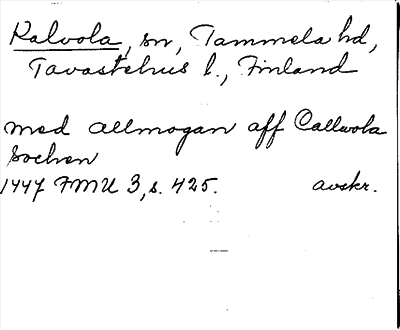 Kalvola, sn, Tammela hd,
Tavastehus l., Finland
med allmogan aff Callwola
sochen
1447 FMU 3, s. 425. avskr.